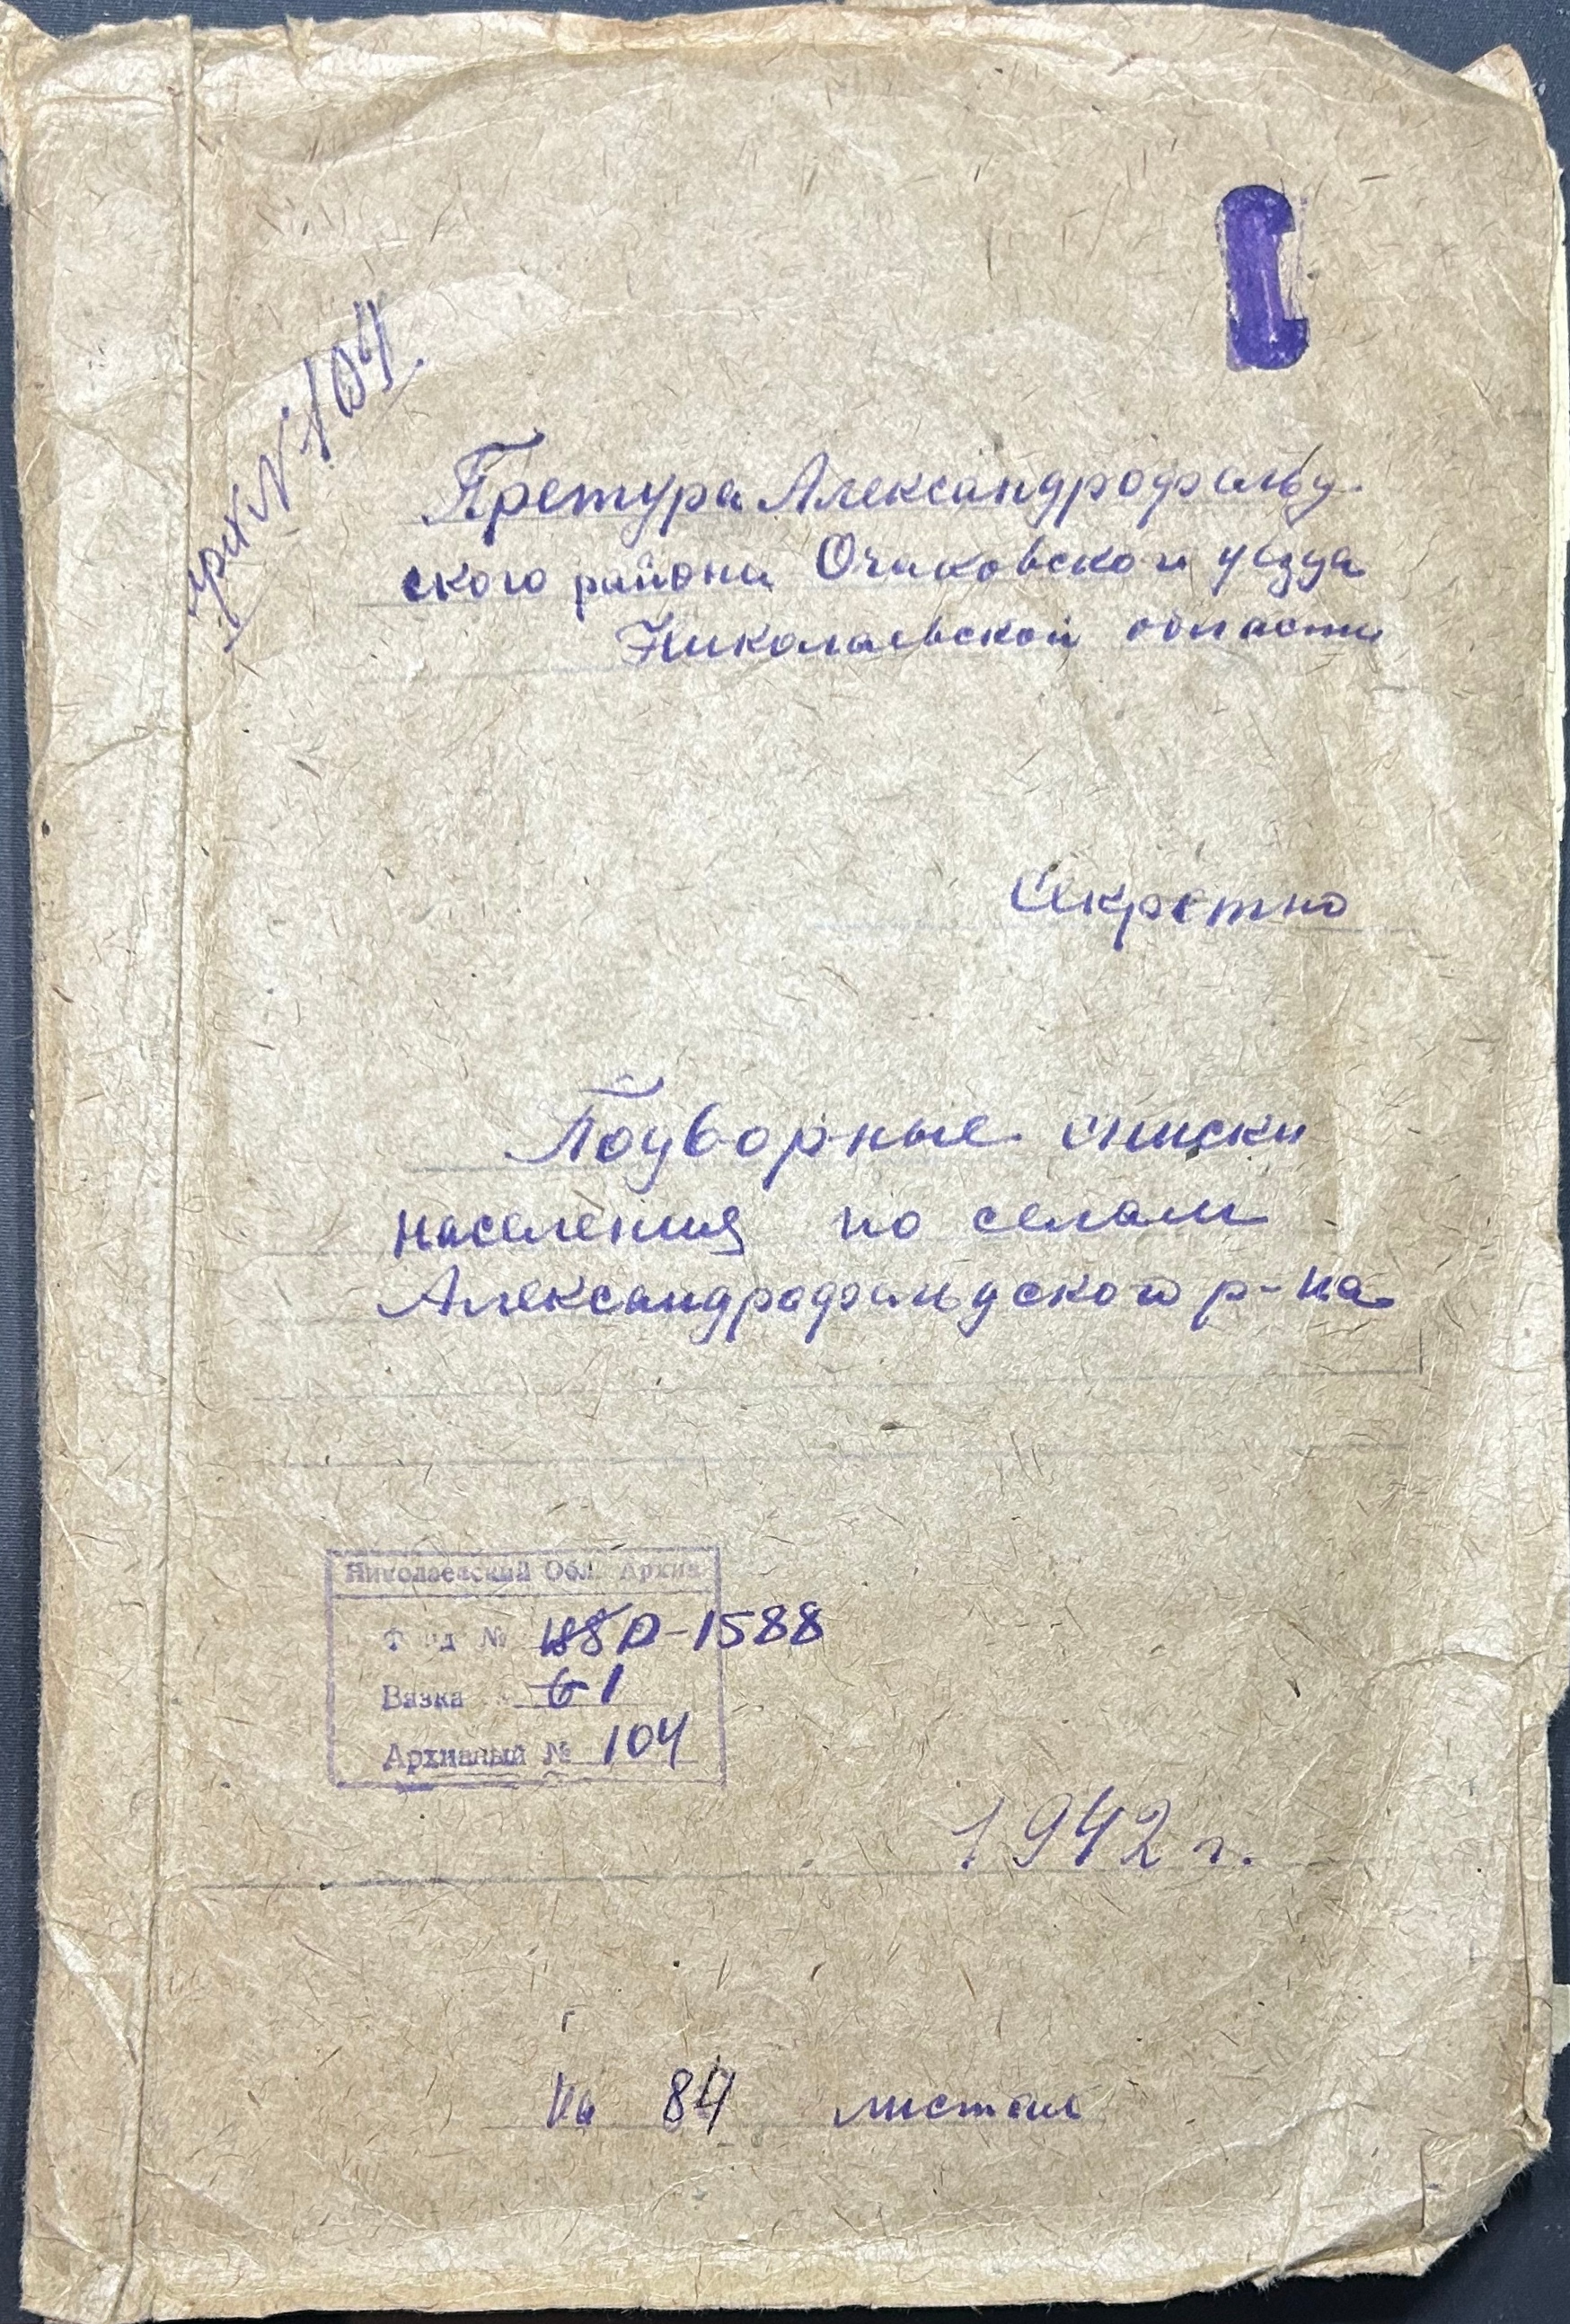 арх № 104.
Претура Александрофельд-
ского района Очаковского уезда
Николаевской области
Секретно
Подворные списки
населения по селам
Александрофельдского р-на
Николаевский Обл. Архив
Фонд № Р-1588
Вязка 61
Архивный № 104
1942 г.
На 84 листах